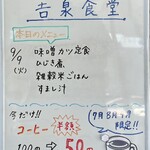 吉泉食堂
本日のメニュー
9/9
(火)
味噌カツ定食
ひじき煮
雑穀米ごはん
すまし汁
今だけ!!
コーヒー
半額
100円→50円
7月8月9月
限定!!